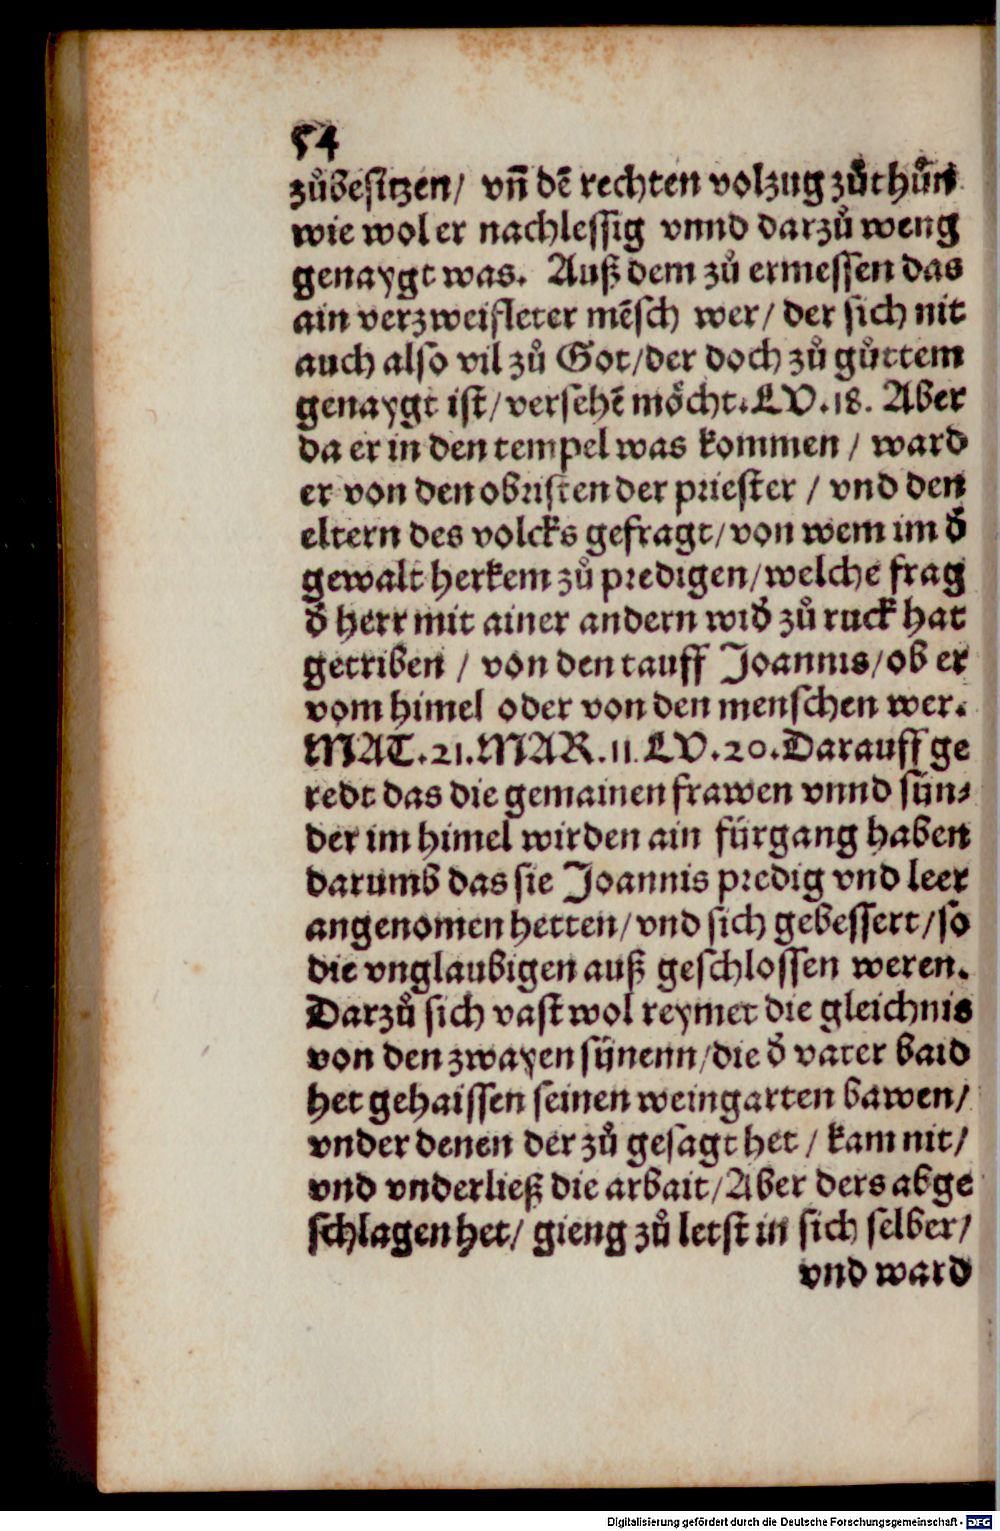 54
zůbesitzen/ vñ dē rechten volzug zůthůn
wie wol er nachlessig vnnd darzů weng
genaygt was. Auß dem zů ermessen das
ain verzweifleter mēsch wer/ der sich nit
auch also vil zů Got/der doch zů gůttem
genaygt ist/ versehē möcht.LV.18. Aber
da er in den tempel was kommen / ward
er von den obristen der priester / vnd den
eltern des volcks gefragt/ von wem im ď
gewalt herkem zů predigen/welche frag
ď herr mit ainer andern wiď zů ruck hat
getriben / von den tauff Joannis/ob er
vom himel oder von den menschen wer.
MAT.21.MAR.11.LV.20.Darauff ge
redt das die gemainen frawen vnnd sün⸗
der im himel wirden ain fürgang haben
darumb das sie Joannis predig vnd leer
angenomen hetten/vnd sich gebessert/so
die vnglaubigen auß geschlossen weren.
Darzů sich vast wol reymet die gleichnis
von den zwayen sünenn/die ď vater baid
het gehaissen seinen weingarten bawen/
vnder denen der zů gesagt het / kam nit/
vnd vnderließ die arbait/Aber ders abge
schlagen het/ gieng zů letst in sich selber/
vnd ward
Digitalisierung gefördert durch die Deutsche Forschungsgemeinschaft - DFG